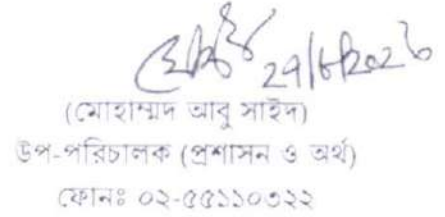 (মোহাম্মদ আবু সাইদ)
উপ-পরিচালক (প্রশাসন ও অর্থ)
ফোনঃ ০২-৫৫১১০৩২২